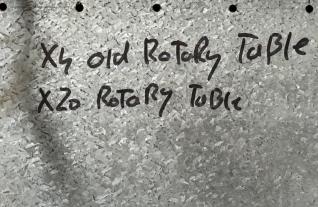 X4 old RoTaRy TaBle
X20 RoTaRy TaBle